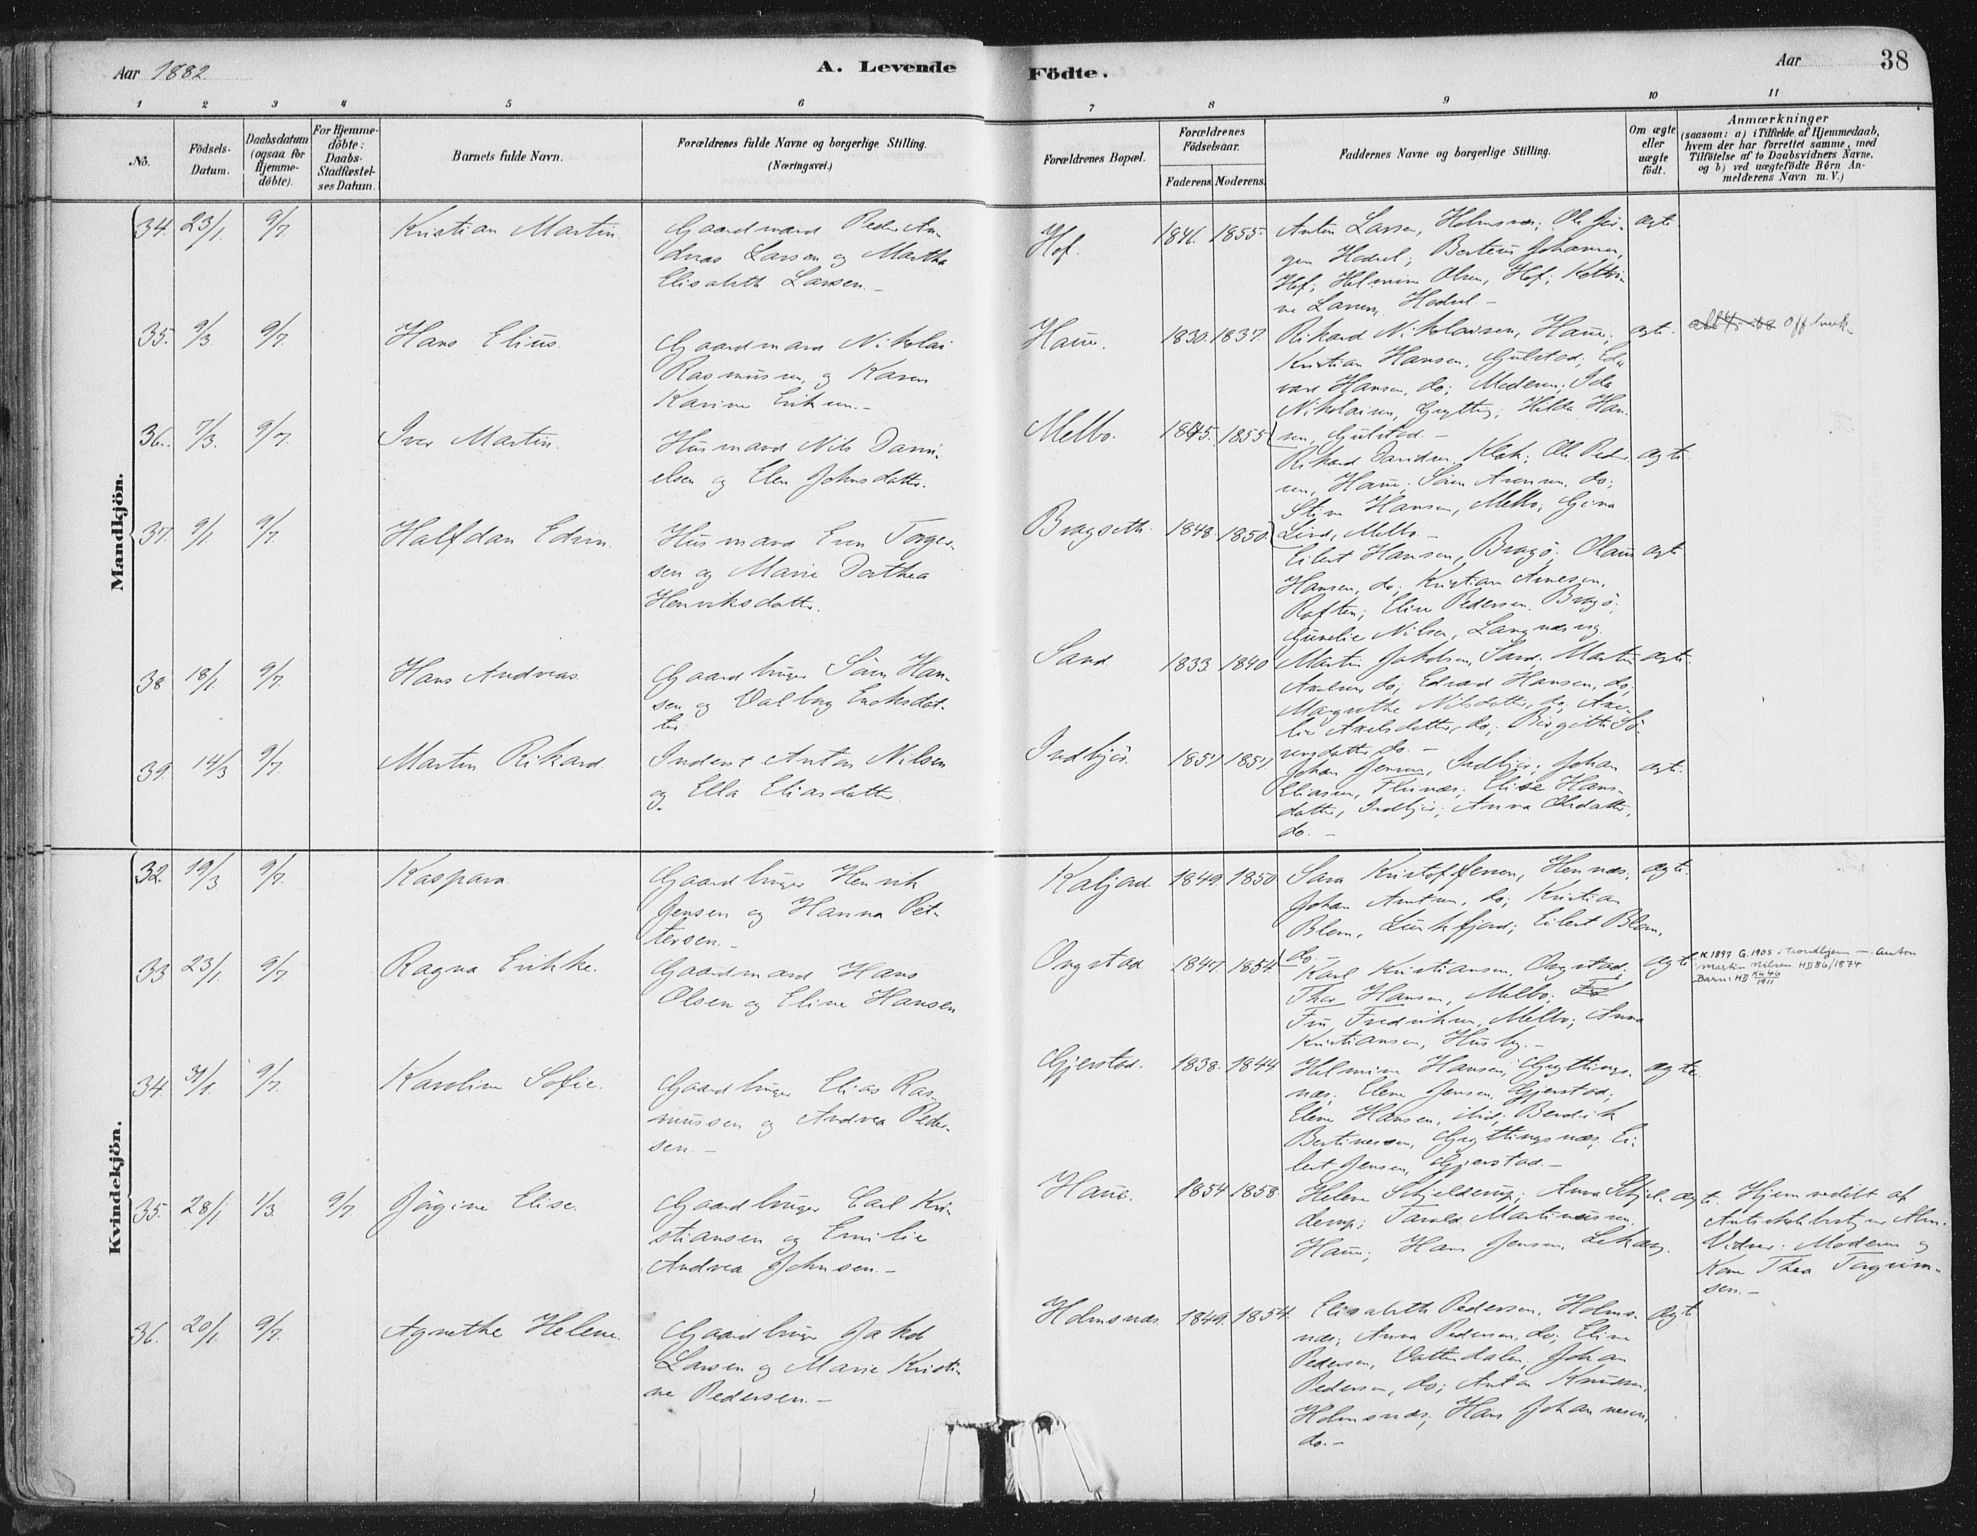 Aar 1882
A. Levende
Födte.
Aar
38
1 2 3 4 5 6 7 8 9 10 11
No.
Födsels-Datum.
Daabsdatum (ogsaa for Hjemme-döbte).
For Hjemme-döbte: Daabs-Stadfæstel-ses Datum.
Barnets fulde Navn.
Forældrenes fulde Navne og borgerlige Stilling.
(Næringsvei.)
Forældrenes Bopæl.
Forældrenes Födselsaar.
Faderens. Moderens.
Faddernes Navne og borgerlige Stilling.
Om ægte eller uægte födt.
Anmærkninger
(saasom: a) i Tilfælde af Hjemmedaab,
hvem der har forrettet samme, med
Tilföielse af to Daabsvidners Navne,
og b) ved uægtefödte Börn An-
melderens Navn m. V.)
Mandkjön.
34. 23/1. 9/7. Kristian Martin.
Gaardmand Peder An-
dreas Larsen og Martha
Elisabeth Larsen.-
Hof. 1846. 1855.
Anton Larsen, Holmsnæs; Ole Jör-
gen Hadsel; Berteus Johansen,
Hof; Helmine Olsen, Hof; Kathri-
ne Larsen, Hadsel -
ægte.
35. 9/3. 9/7. Hans Elius.
Gaardmand Nikolai
Rasmussen og Karen
Karine Eriksen.-
Haue. 1830. 1837.
Rikard Nikolaisen, Haue;
Kristian Hansen, Gulstad; Ed-
vard Hansen, do; Moderen; Ida
Nikolaisen, Grytting; Hilda Han-
sen, Gulstad.-
ægte.
36. 7/3. 9/7. Iver Martin.
Husmand Nils Dani-
elsen og Elen Johnsdatter.
Melbo. 1845. 1855
Rikard Davidsen, ; Ole Peder-
sen, Haue; Sören Arensen, do;
Stine Hansen, Melbo; Gina
Lind, Melbo -
ægte.
37. 9/1. 9/7. Halfdan Edvin.
Husmand Even Torger-
sen og Marie Dorthea
Henriksdatter.
Bragseth. 1848. 1850.
Eilert Hansen, Bragö; Olaus
Hansen, do; Kristian Arnesen,
Raften; Eline Pedersen, Bragö;
Nilsen,
ægte
38 18/1. 9/7. Hans Andreas.
Gaardbruger Sören Han-
sen og Valborg Enoksdat-
ter.
Sand 1833. 1840
Martin Jakobsen, Sand; Martin
Axelsen, do; Edvard Hansen, do;
Margrethe Nilsdatter, do;
Axelsdatter, do; Birgitte Sö-
rensdatter, do.-
ægte.
39. 14/3 9/7 Martin Rikard
Inderst Anton Nilsen
og Ella Eliasdatter
Indbjör. 1857 1857
Johan Jensen, Indbjör; Johan
Eliasen, ; Elise Hans-
datter, Indbjör; Anna Olsdatter,
do.-
ægte.
Kvindekjön.
32. 19/3 9/7. Kaspara.
Gaardbruger Henrik
Jensen og Hanna Pet-
tersen.-
Kaljord. 1849. 1850
Sara Kristoffersen, Hennæs;
Johan Antonsen, do; Kristian
Blom, ; Eilert Blom,
do.
ægte.
33 23/1. 9/7. Ragna Erikke.
Gaardmand Hans
Olsen og Eline Hansen
Ongstad 1847. 1854.
Karl Kristiansen, Ongstad;
Thor Hansen, Melbo;
Fin Fredriksen, Melbo; Anna
Kristiansen, Husby.-
ægte
K 1897 G. 1905 i Trondhjem m. Anton
Martin Nilsen HD 86/1874
Barn: HD K446/1911
34. 31/1. 9/7. Karoline Sofie.
Gaardbruger Elias Ras-
mussen og Andrea Peder-
sen.-
Gjerstad. 1838. 1844
Helmine Hansen, Gryttings-
næs; Elene Jensen, Gjerstad;
Elene Hansen, ibid; Bendik
Bertinessen, Gryttingsnæs; Ei-
lert Jensen, Gjerstad.-
ægte.
35. 28/1 1/3. 9/7 Jörgine Elise.
Gaardbruger Carl Kri-
stiansen og Emilie
Andrea Johnsen.-
Haue. 1854 1858.
Helene Schjelderup; Anna Schjel-
derup; Tarald Martinussen,
Haue; Hans Jensen,
ægte.
Hjemmedöbt af
Vidner: Moderen og
Kone Thea Torgrim-
sen.-
36. 20/1. 9/7. Agnethe Helene.
Gaardbruger Jakob
Larsen og Marie Kristi-
ne Pedersen.-
Holmsnæs. 1849. 1854.
Elisabeth Pedersen, Holms-
næs; Anna Pedersen, do; Eline
Pedersen, Vatterdalen; Johan
Pedersen, do; Anton Knudsen,
Holmsnæs; Hans Johannesen,
do.-
ægte